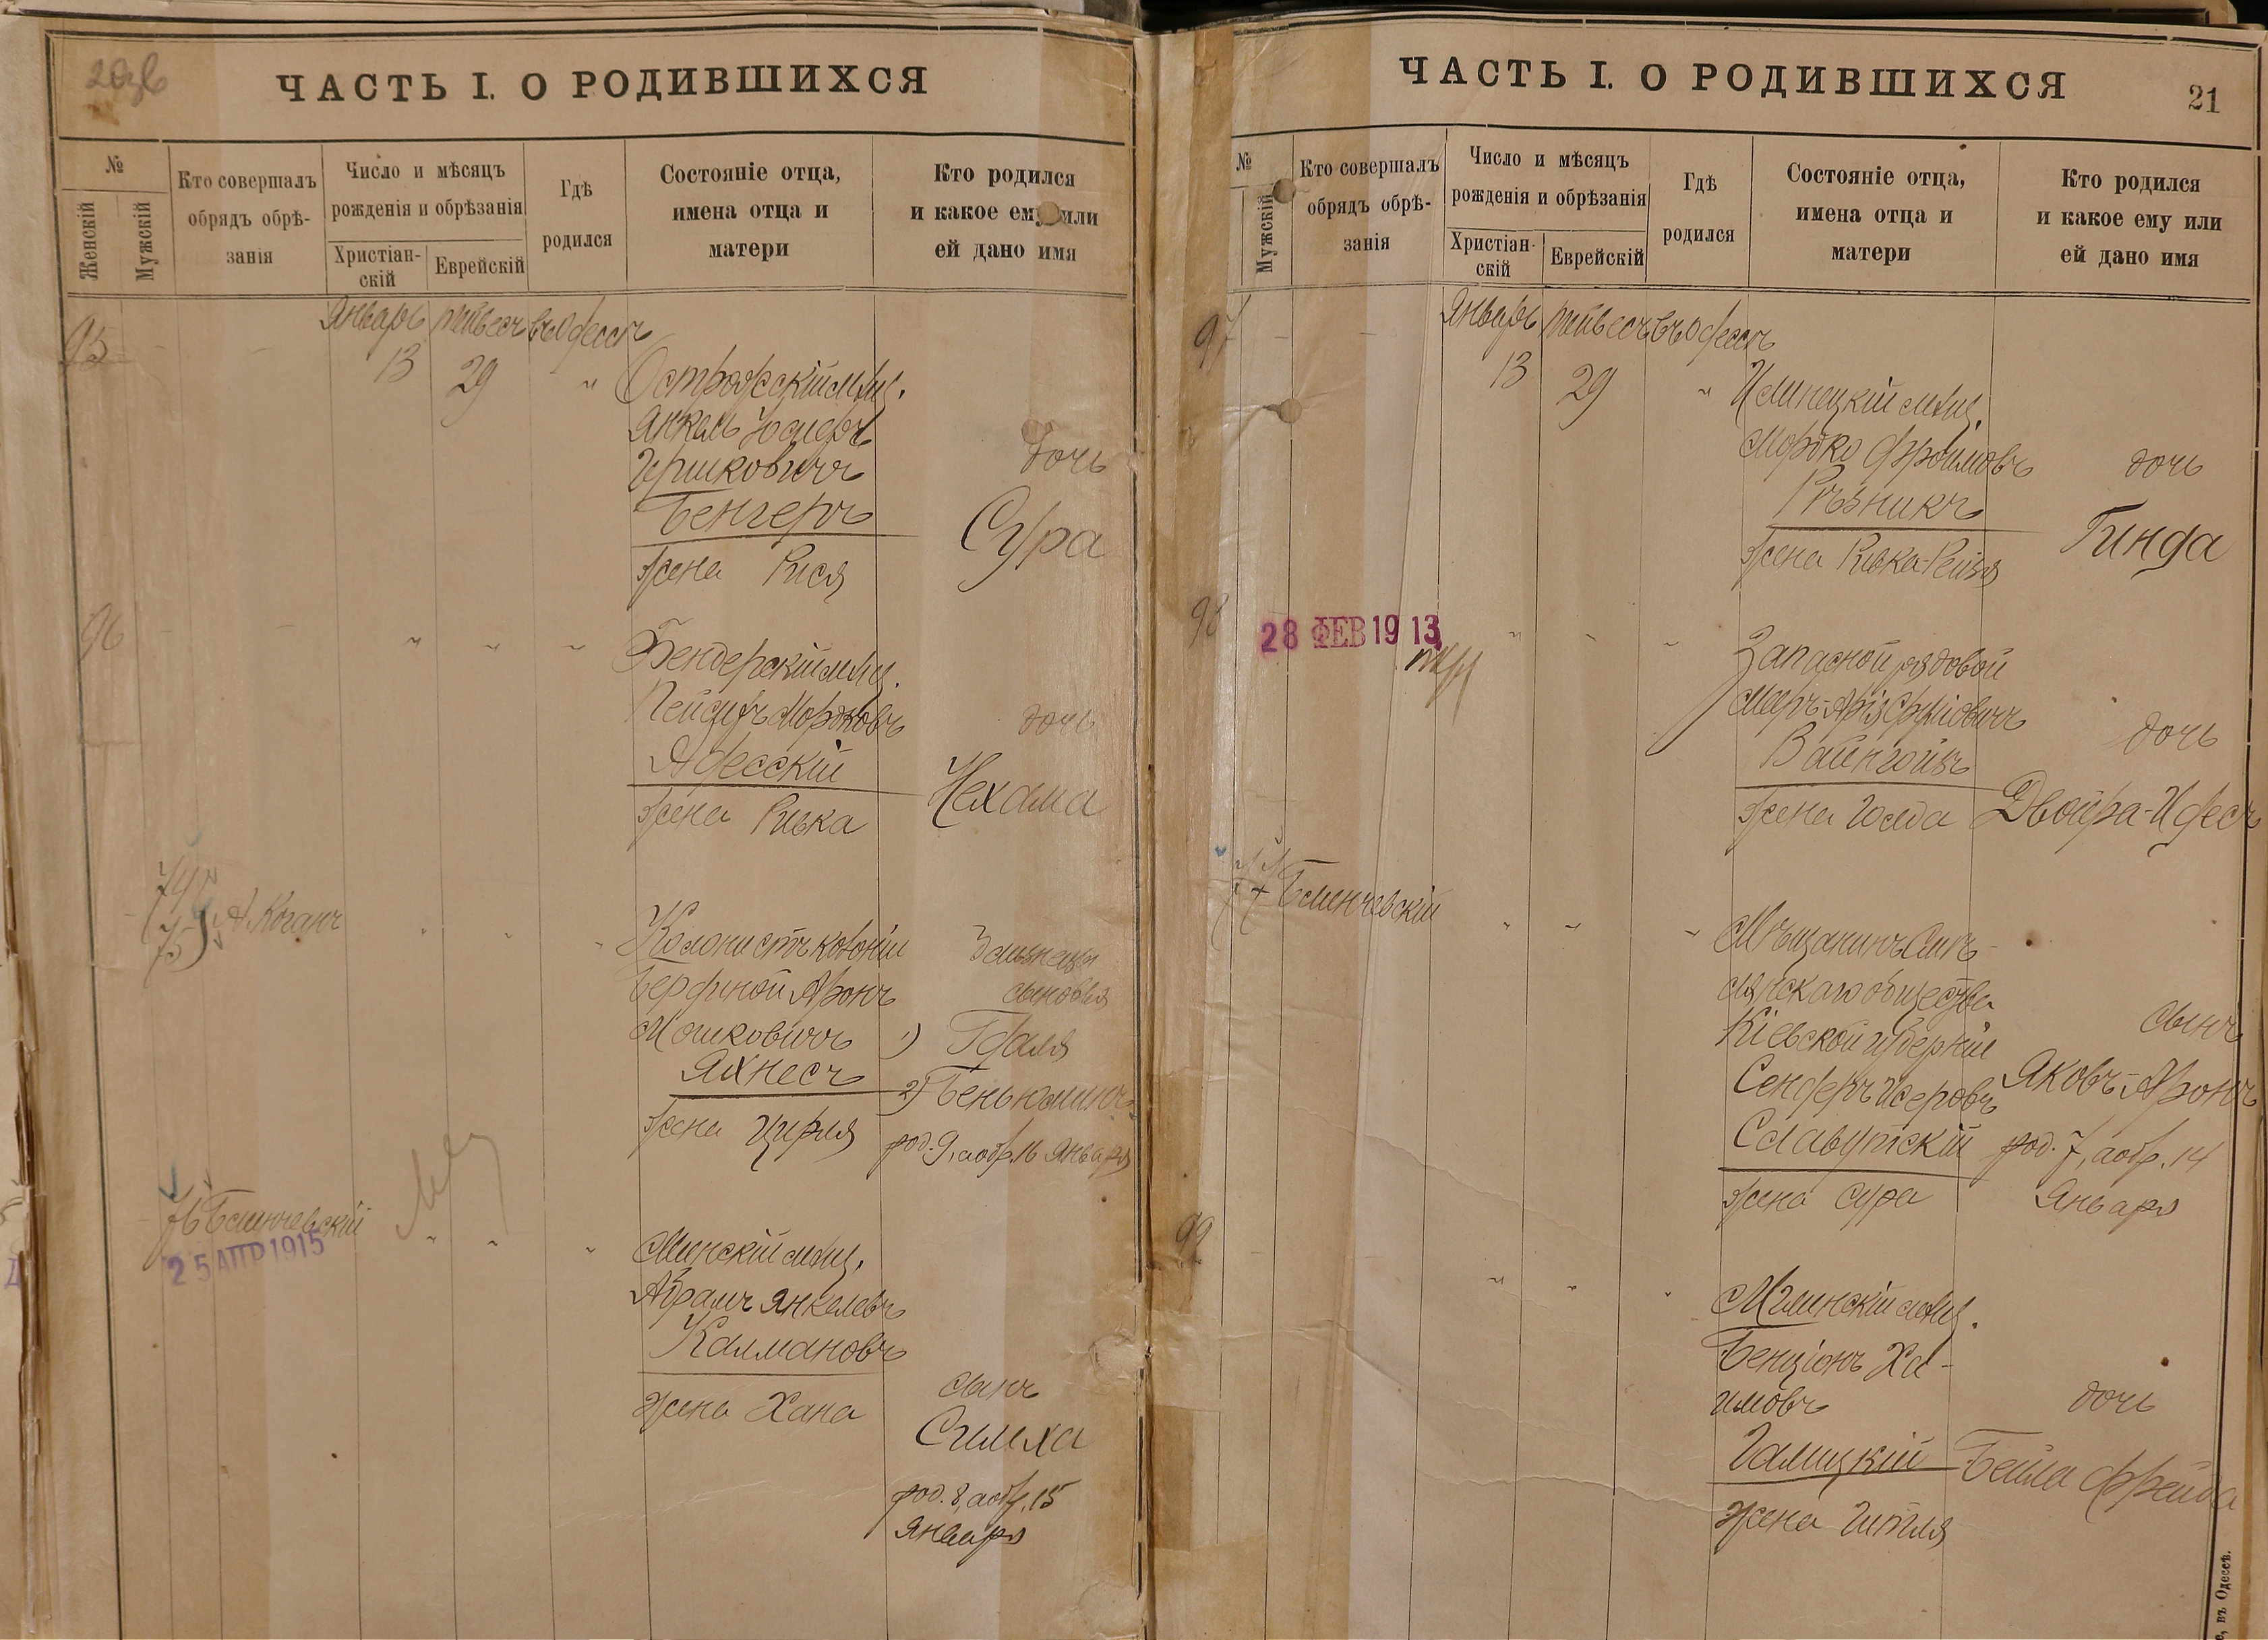 20об
ЧАСТЬ I. О РОДИВШИХСЯ
№
Женскій
Мужскій
Кто совершалъ
обрядъ обрѣ-
занія
Число и мѣсяцъ
рожденія и обрѣзанія
Христіан-
скій
Еврейскій
Гдѣ
родился
Состояніе отца,
имена отца и
матери
Кто родился
и какое ему или
ей дано имя
Январь тейвесъ въ Одессѣ
95
13 29 "
мѣщ.
Янкель Іосифъ
Гершковичъ
Бенгеръ
жена Рися
дочь
Сура
96
Бендерскій мѣщ.
Пейсахъ Мордковъ
Адесскій
жена Ривка
дочь
Нехама
74
75
А. Коганъ
Колонистъ колоніи
Аронъ
Мошковичъ
Яхнесъ
жена Цирля
Близнецы
сыновья
1) Гдаля
2) Беньюминъ
род. 9, а обр. 16 Января
76
25 АПР 1915
Минскій мѣщ.
Абрамъ Янкелевъ
Калмановъ
жена Хана
сынъ
Симха
род. 8, а обр. 15
Января
ЧАСТЬ I. О РОДИВШИХСЯ
21
№
Мужскій
Кто совершалъ
обрядъ обрѣ-
занія
Число и мѣсяцъ
рожденія и обрѣзанія
Христіан-
скій
Еврейскій
Гдѣ
родился
Состояніе отца,
имена отца и
матери
Кто родился
и какое ему или
ей дано имя
Январь тейвесъ въ Одессѣ
97
13 29 "
Илинецкій мѣщ.
Мордко Фроимовъ
Рѣзникъ
жена Ривка-Рейзя
дочь
Гинда
98
28 ФЕВ 1913
Запасной рядовой
Вайнгойзъ
жена Голда
дочь
Двойра-Идесъ
77
Мѣщанинъ
общества
Кіевской губерніи
Сендеръ Исеровъ
Славутскій
жена Сура
сынъ
Яковъ-Аронъ
род. 7, а обр. 14
Января
99
Мглинскій мѣщ.
Бенціонъ Ха-
имовъ
Галицкій
жена Гитля
дочь
Бейла Фрейда
, въ Одессѣ.